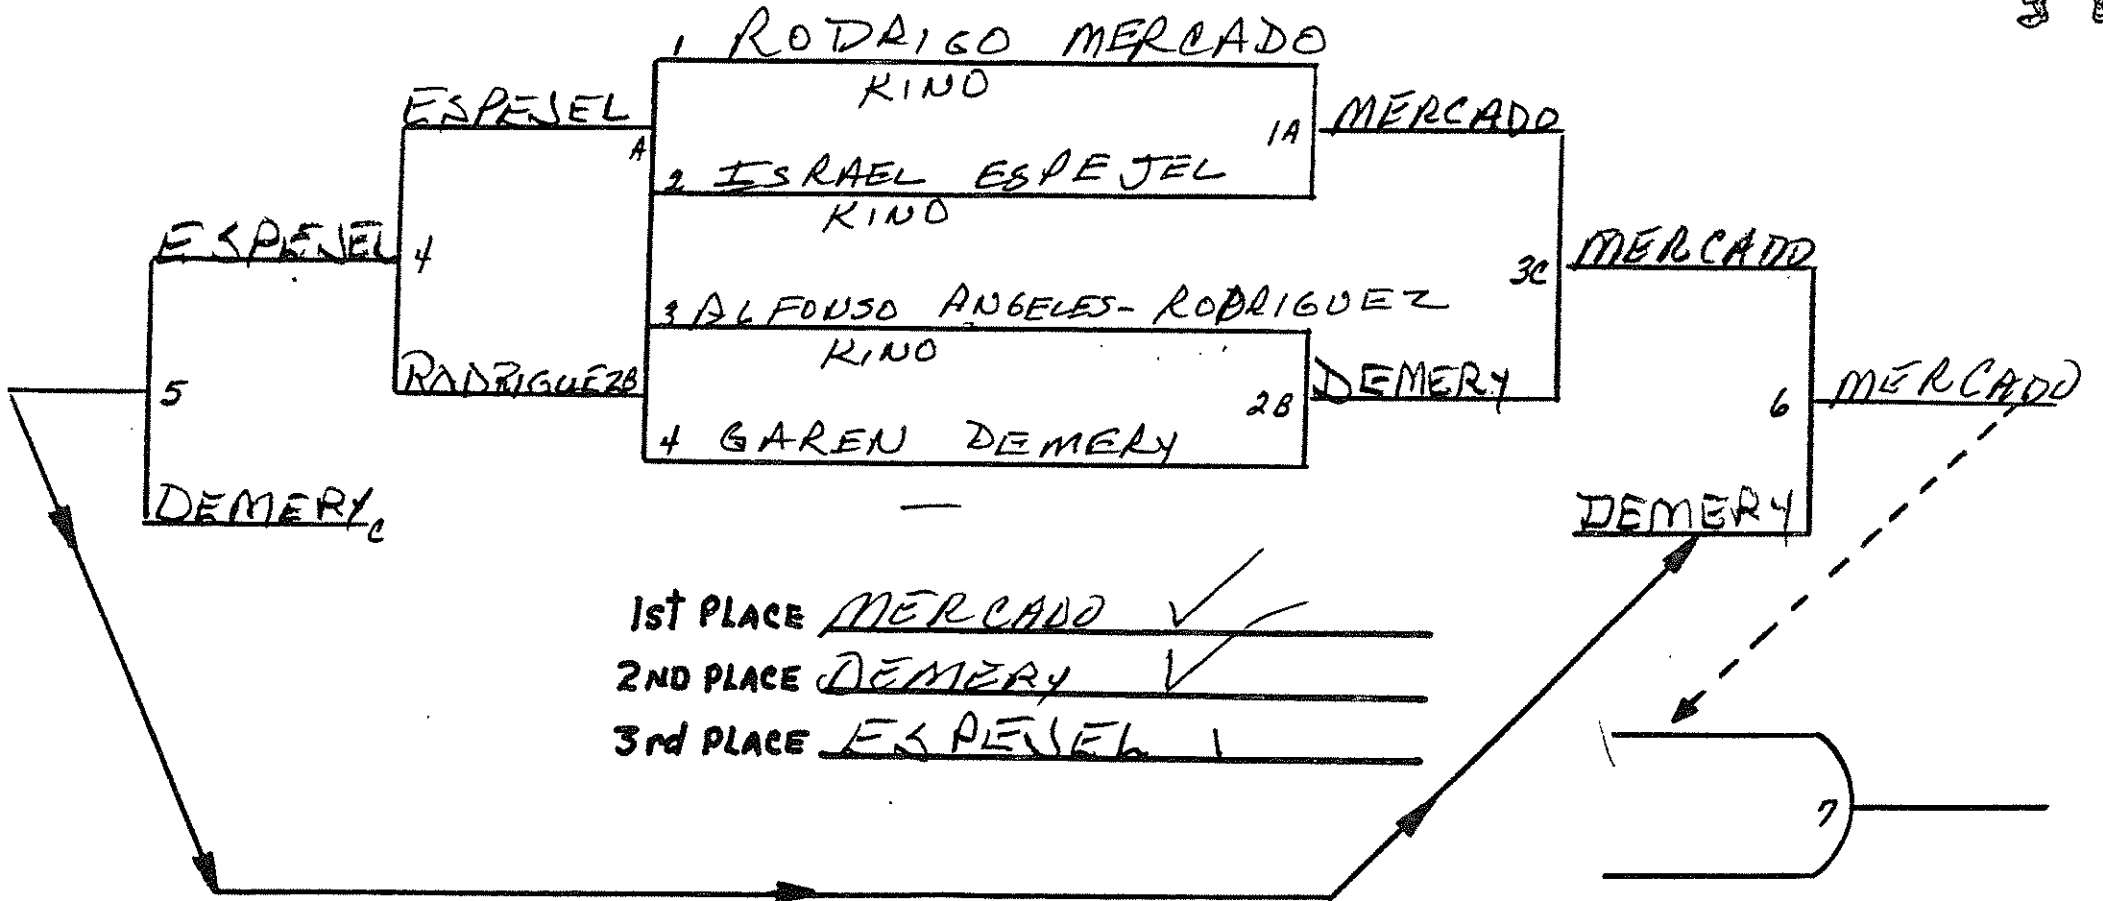 1 RODRIGO MERCADO
KINO
ESPEJEL
A
1A
MERCADO
2 ISRAEL ESPEJEL
KINO
ESPEJEL
4
3C
MERCADO
3 ALFONSO ANGELES-RODRIGUEZ
KINO
RODRIGUEZ B
DEMERY
5
2B
6
MERCADO
4 GAREN DEMERY
DEMERY C
—
DEMERY
1st PLACE MERCADO ✓
2ND PLACE DEMERY ✓
3rd PLACE ESPEJEL
7